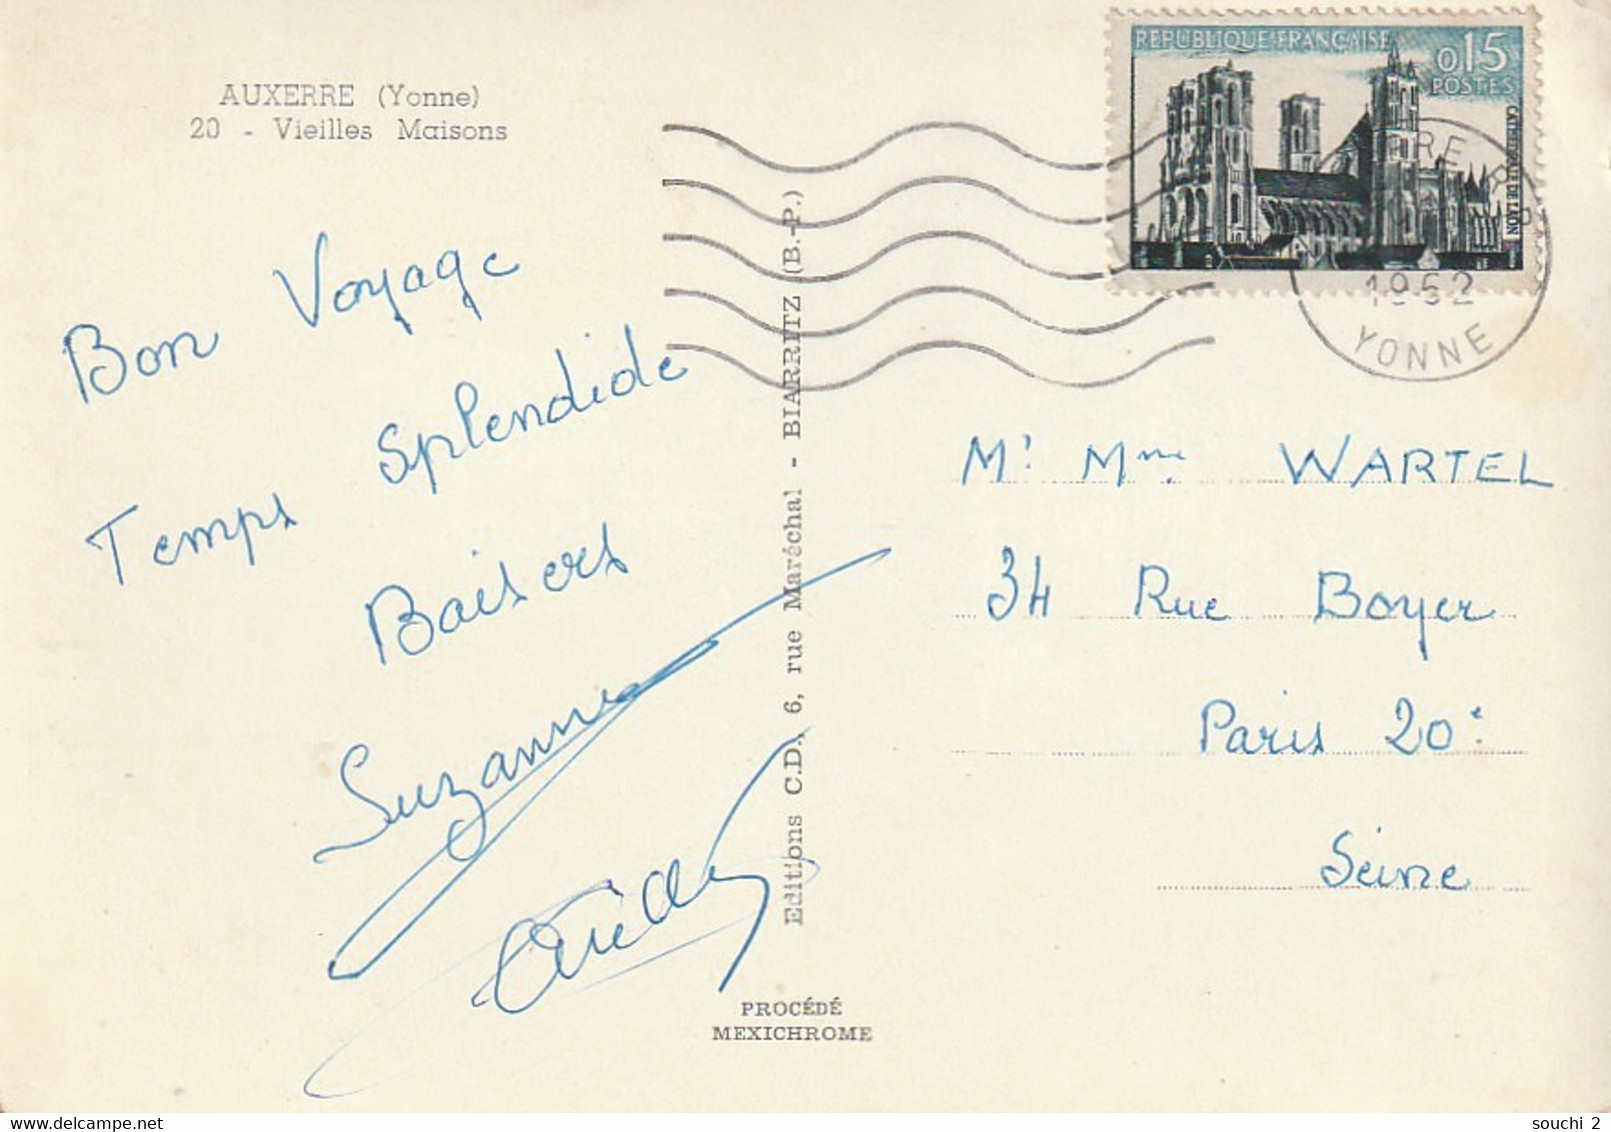 AUXERRE (Yonne)
20 - Vieilles Maisons
Bon Voyage
Temps Splendide
Baisers
Suzanne
Editions C.D., 6, rue Maréchal - BIARRITZ (B.-P.)
PROCÉDÉ
MEXICHROME
REPUBLIQUE FRANÇAISE
0,15
POSTES
CATHEDRALE DE LAON
1962
YONNE
Mr Mme WARTEL
34 Rue Boyer
Paris 20e
Seine
souchi 2